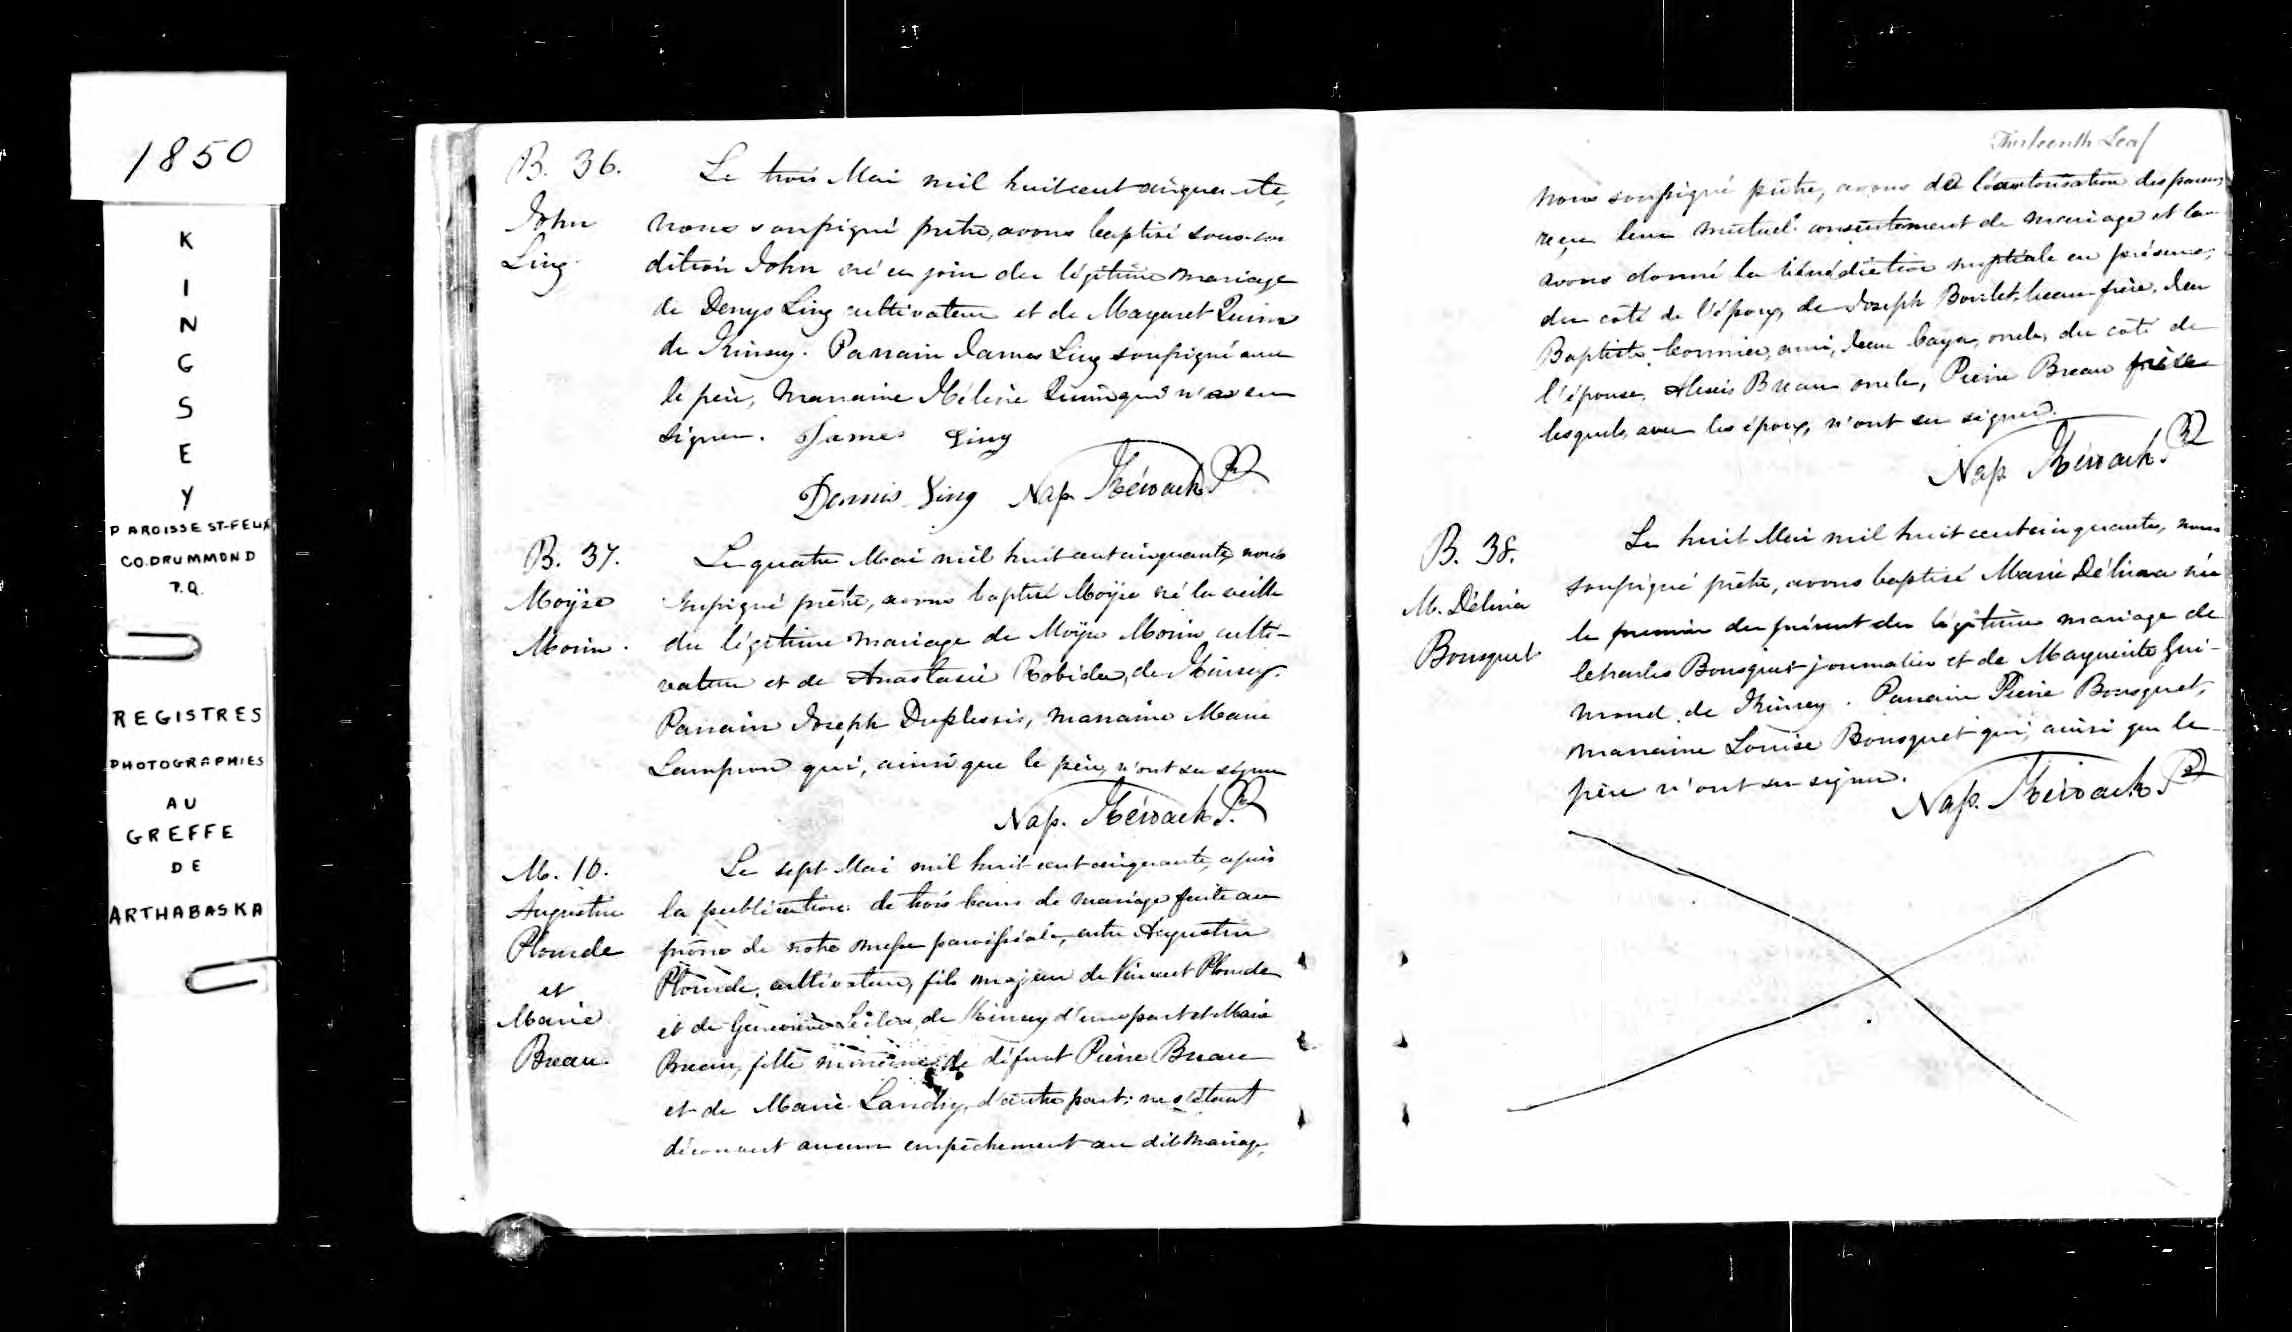 1850
K
I
N
G
S
E
Y
PAROISSE ST-FELIX
CO. DRUMMOND
P.Q.
REGISTRES
PHOTOGRAPHIES
AU
GREFFE
DE
ARTHABASKA
B. 36.
John
Ling.
Le trois Mai mil huit cent cinquante,
nous soussigné prêtre, avons baptisé sous con
dition John né ce jour du légitime mariage
de Denys Ling cultivateur et de Magaret Quinn
de Kinsey. Parrain James Ling soussigné avec
le père, Marraine Hélène Quinn qui n'a su
signer. James Ling
Dennis Ling Nap. Kéroack Ptre
B. 37.
Moÿse
Morin.
Le quatre Mai mil huit cent cinquante, nous
soussigné prêtre, avons baptisé Moÿse né la veille
du légitime mariage de Moÿse Morin culti-
vateur et de Anastasie Robidas, de Kinsey.
Parrain Joseph Duplessis, marraine Marie
Lampron qui, ainsi que le père, n'ont su signer
Nap. Kéroack Ptre
M. 10.
Augustin
Plourde
et
Marie
Breau.
Le sept Mai mil huit cent cinquante, après
la publication de trois bans de mariage faite au
prône de notre messe paroissiale, entre Augustin
Plourde, cultivateur, fils majeur de Vincent Plourde
et de Geneviève Leclerc, de Kinsey d'une part et Marie
Breau, fille mineure de défunt Pierre Breau
et de Marie Landry, d'autre part; ne s'étant
découvert aucun empêchement au dit mariage,
Thirteenth Leaf
nous soussigné prêtre, avons de l'autorisation des parens,
reçu leur mutuel consentement de mariage et leur
avons donné la bénédiction nuptiale en présence,
du côté de l'époux, de Joseph Boulet, beau-frère, Jean
Baptiste Cormier, ami, Jean oncle, du côté de
l'épouse, Alexis Breau oncle, Pierre Breau frère
lesquels, avec les époux, n'ont su signer.
Nap. Kéroack Ptre
B. 38.
M. Délina
Bousquet
Le huit Mai mil huit cent cinquante, nous
soussigné prêtre, avons baptisé Marie Délina née
le premier du présent du légitime mariage de
Charles Bousquet journalier et de Marguerite Gui-
mond de Kinsey. Parrain Pierre Bousquet,
marraine Louise Bousquet qui, ainsi que le
père n'ont su signer.
Nap. Kéroack Ptre